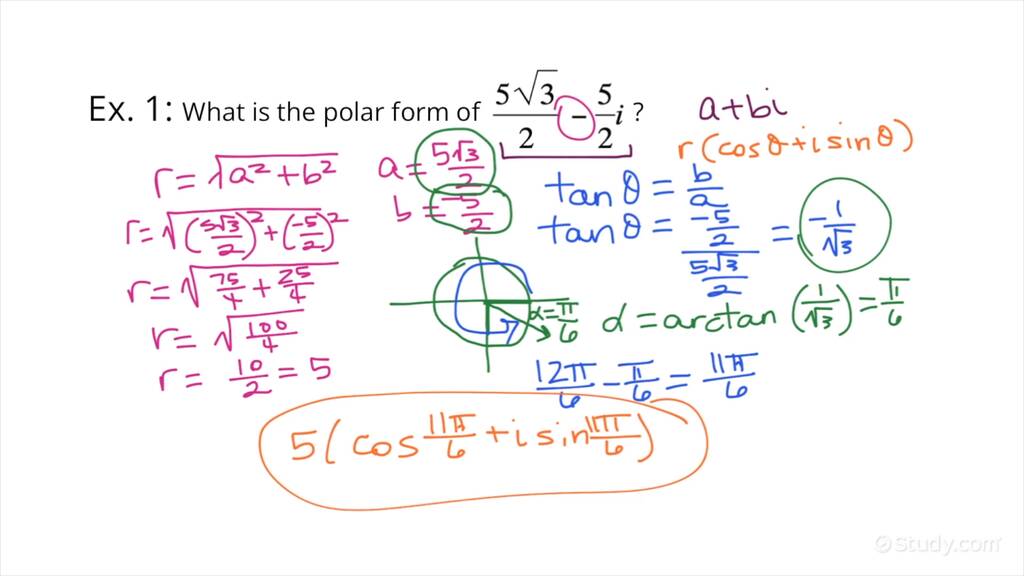 Ex. 1: What is the polar form of 5√3/2 − 5/2 i ?
a+bi
r(cosθ+i sinθ)
r = √a²+b²
r = √(5√3/2)²+(-5/2)²
r = √75/4 + 25/4
r = √100/4
r = 10/2 = 5
a = 5√3/2
b = -5/2
tanθ = b/a
tanθ = -5/2 / 5√3/2 = -1/√3
α = π/6
α = arctan (1/√3) = π/6
12π/6 − π/6 = 11π/6
5(cos 11π/6 + i sin 11π/6)
Study.com